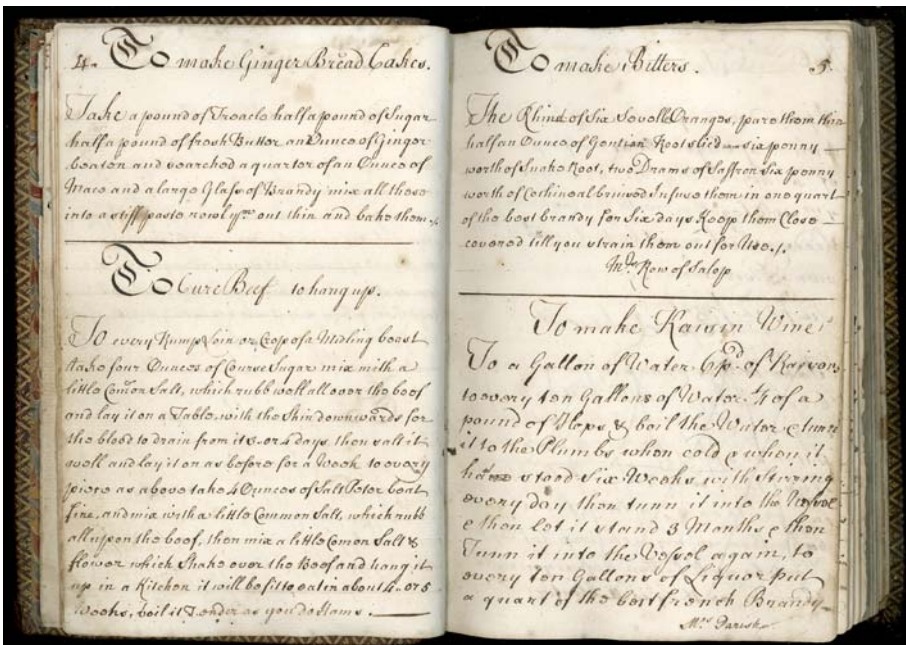 4. To make Ginger Bread Cakes.
Take a pound of Treacle half a pound of Sugar
half a pound of fresh Butter an Ounce of Ginger
beaten and searched a quarter of an Ounce of
Mace and a large Glass of Brandy mix all these
into a stiff paste rowl y.m out thin and bake them
To Cure Beef to hang up.
To every Rump Loin or Crop of a Midling beast
take four Ounces of Course Sugar mix with a
little Comon Salt, which rubb well all over the beef
and lay it on a Table, with the Skin downwards for
the blood to drain from it 3. or 4 days, then salt it
well and lay it on as before for a Week to every
piece as above take 4 Ounces of Salt Peter beat
fine, and mix with a little Common Salt, which rubb
all upon the beef, then mix a little Comon Salt &
flower which Shake over the Beef and hang it
up in a Kitchen it will be fit to eat in about 4. or 5
Weeks, boil it Tender as you do Hams.
To make Bitters. 5.
The Rhind of Six Sevelle Oranges, pare them thin
half an Ounce of Gentian Root slied six penny
worth of Snake Root, two Drams of Saffron Six penny
worth of Cochineal bruised Infuse them in one quart
of the best brandy for Six days Keep them Close
covered till you strain them out for Use.
Row of Salop
To make Raisin Wine
To a Gallon of Water 6 pd. of Raisons
to every ten Gallons of Water 1/4 of a
pound of Hops & boil the Water & turn
it to the Plumbs when cold & when it
has stood Six Weeks with Stirring
every day then tunn it into the Vessel
& then let it stand 3 Months & then
Tunn it into the Vessel again, to
every ten Gallons of Liquor put
a quart of the best french Brandy
Mrs. Parish